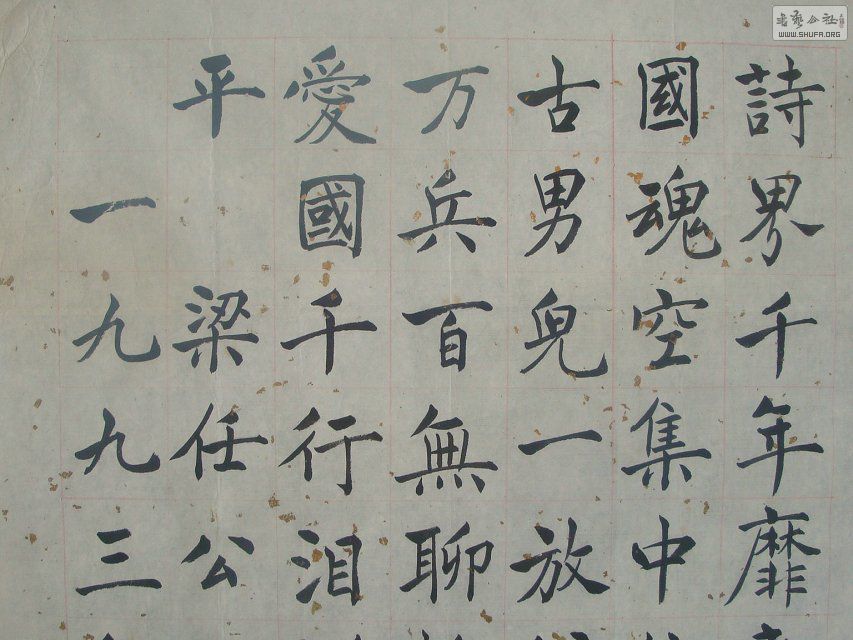 詩界千年靡
國魂空集中
古男兒一放
万兵百無聊
愛國千行泪
平 梁任公
一九九三
書藝公社
WWW.SHUFA.ORG